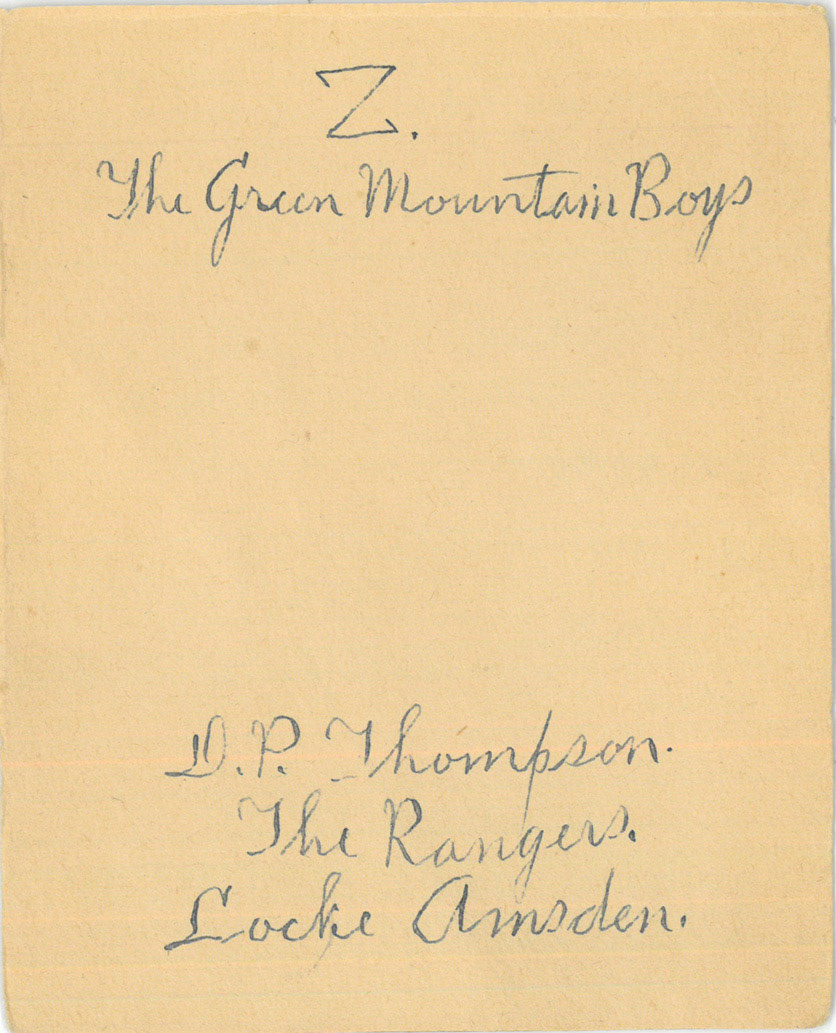 Z.
The Green Mountain Boys
D.P. Thompson.
The Rangers.
Locke Amsden.